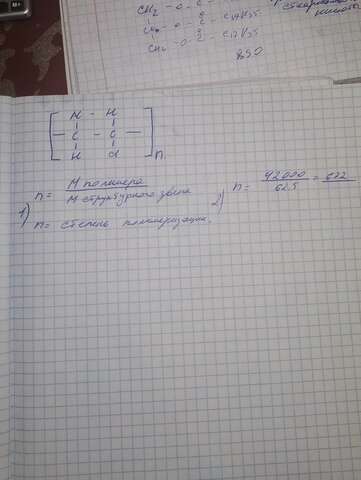 CH2 - O - C - C17H35
CH2 - O - C - C17H35
890
кислоты
[ H - H
— C - C —
H Cl ] n
1) n = M полимера / M структурного звена
n = степень полимеризации.
2) n = 42000 / 62.5 = 672